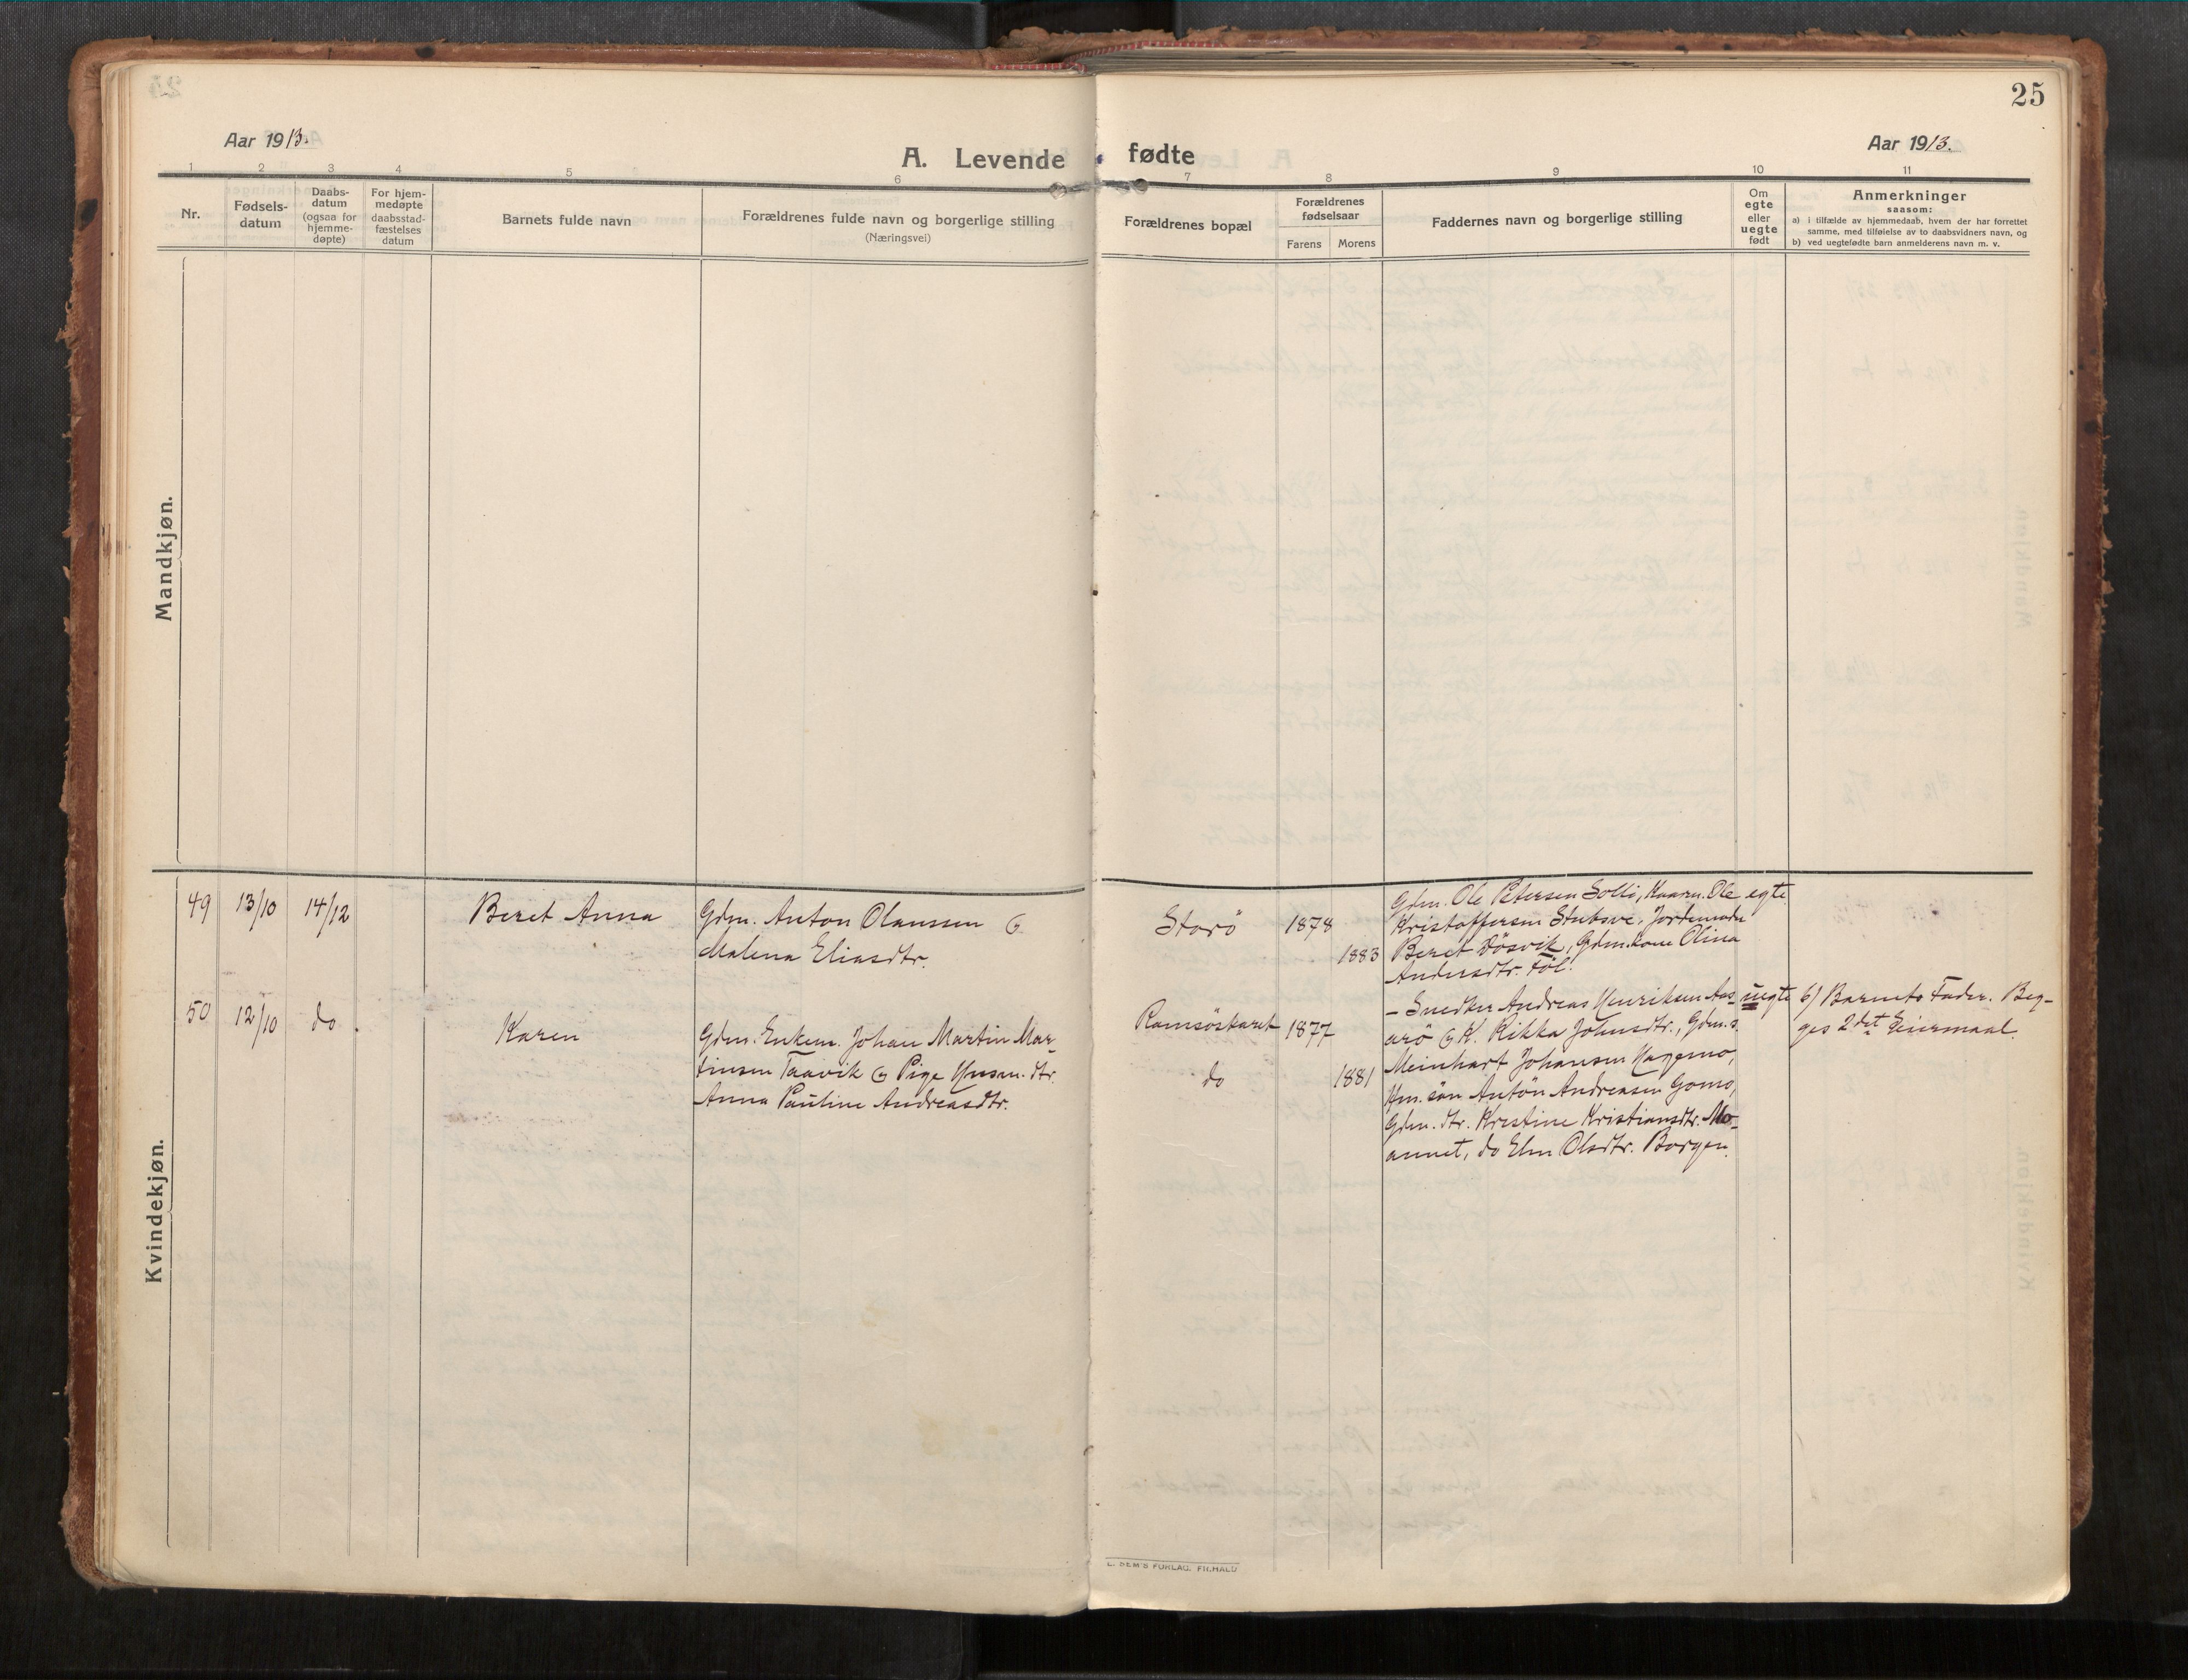 25
Aar 1913.
Aar 1913.
A. Levende fødte
1 2 3 4 5 6 7 8 9 10 11
Nr.
Fødsels-
datum
Daabs-
datum
(ogsaa for
hjemme-
døpte)
For hjem-
medøpte
daabsstad-
fæstelses
datum
Barnets fulde navn
Forældrenes fulde navn og borgerlige stilling
(Næringsvei)
Forældrenes bopæl
Forældrenes
fødselsaar
Farens Morens
Faddernes navn og borgerlige stilling
Om
egte
eller
uegte
født
Anmerkninger
saasom:
a) i tilfælde av hjemmedaab, hvem der har forrettet
samme, med tilføielse av to daabsvidners navn, og
b) ved uegtefødte barn anmelderens navn m. v.
Mandkjøn.
Kvindekjøn.
49 13/10 14/12
Beret Anna
Gdm. Anton Olaussen &
Malena Eliasdtr.
Storö
1878
1883
Gdm. Ole Petersen Solli, Ole
Kristoffersen Stubsve, Jordemoder
Beret Dösvik, Gdm.kone Olina
Andersdtr. Föl.
egte
50 12/10 do
Karen
Gdm. Enkem. Johan Martin Mar-
tinsen Taavik & Pige Husm. dtr.
Anna Pauline Andreasdtr.
Ramsöskaret 1877
do 1881
- Snedker Andreas Henriksen Aas-
arö & K. Rikka Johnsdtr., Gdm.s.
Meinhart Johansen Hagemo,
Hm. sön Antön Andreasen Gomo,
Gdm. dtr. Kristine Kristiansdtr. Mo-
annet, do Elen Olsdtr. Borgen.
uegte
b) Barnets Fader. Beg-
ges 2det Leiermaal.
E. SEM'S FORLAG. FR.HALD